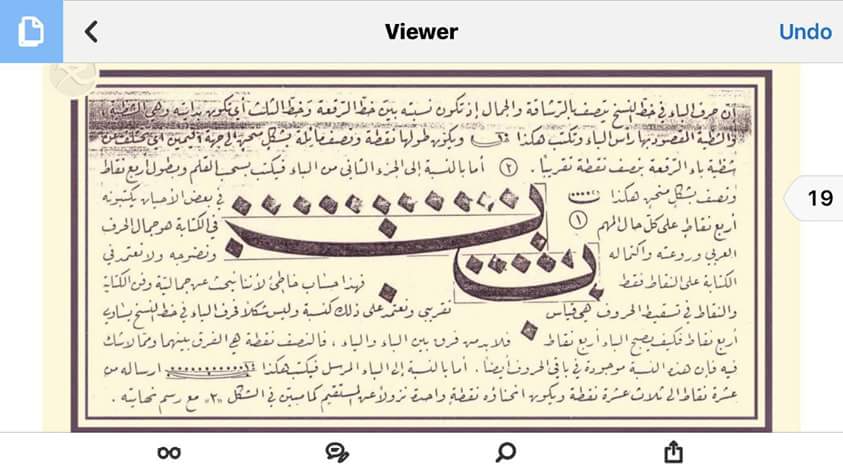 Viewer
Undo
إن حرف الباء في خط النسخ يتصف بالرشاقة والجمال إذ تكون نسبته بين خط الرقعة وخط الثلث أي تكون بدايته وهي الشظية ،
والشظية المقصود بها رأس الباء وتكتب هكذا ويكون طولها نقطة ونصف مائلة بشكل منحن إلى جهة اليمين أي تختلف عن
شظية باء الرقعة بنصف نقطة تقريباً . ٢ أما بالنسبة إلى الجزء الثاني من الباء فيكتب بسحب القلم وبطول أربع نقاط
ونصف بشكل منحن هكذا في بعض الأحيان يكتبونه
19
أربع نقاط على كل حال المهم ١ في الكتابة هو جمال الحرف
العربي وروعته واكتماله ونضوجه ولا نعتمد في
الكتابة على النقاط فقط فهذا حساب خاطئ لأننا نبحث عن جمالية وفن الكتابة
والنقاط في تسقيط الحروف هي قياس تقريبي ونعتمد على ذلك كنسبة وليس شكلاً فحرف الباء في خط النسخ يساوي
أربع نقاط فكيف يصبح الباء أربع نقاط فلا بد من فرق بين الباء والياء ، فالنصف نقطة هي الفرق بينهما ومما لا شك
فيه فإن هذه النسبة موجودة في باقي الحروف أيضاً . أما بالنسبة إلى الباء المرسل فيكتب هكذا ارساله من
عشرة نقاط إلى ثلاث عشرة نقطة ويكون انحناؤه نقطة واحدة نزولاً عن المستقيم كما مبين في الشكل "٢" مع رسم نهايته .